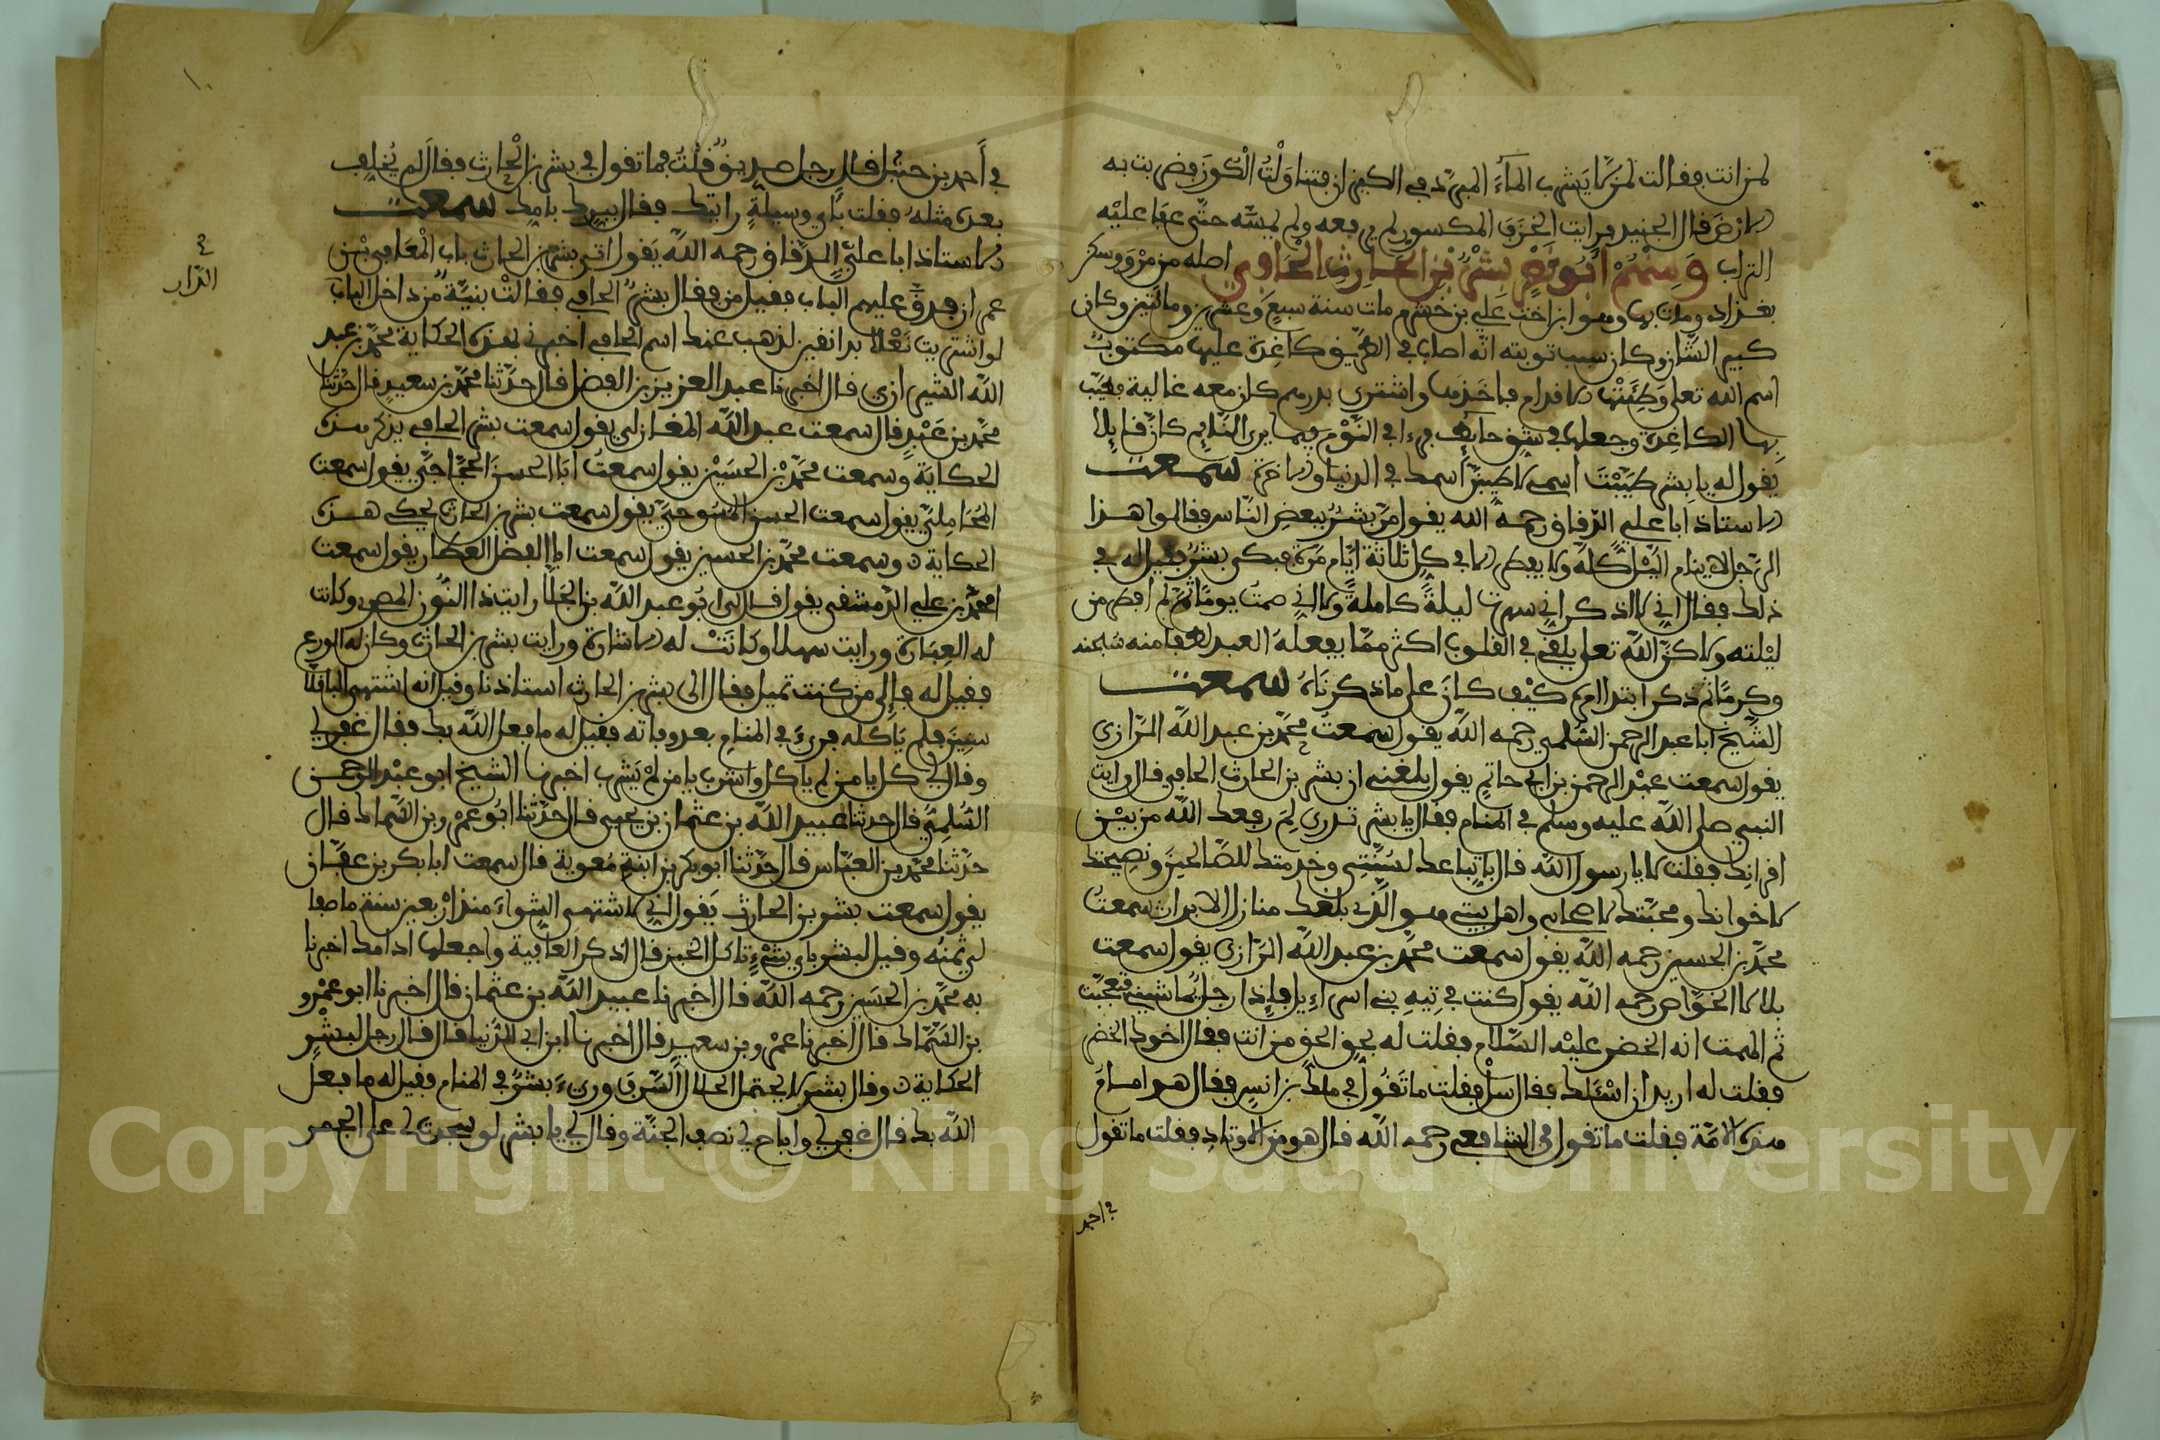 لمن انت فقالت لمن لا يشرب المآء المبرّد في الكيزان فتناوَلْتُ الْكُوزَ فضربت به
الارض قال الجنيد فرايت الخزف المكسور لم يرفعه ولم يمسّه حتّى عفا عليْه
التراب وَمِنْهُمْ أَبُو نَصْرٍ بِشْرُ بْنُ الحارِثِ الْحَافِي اصله من مرْوَ وسكن
بغداد ومات بها وهو ابن اخت علي بن خشرم مات سنة سبع وعشرين ومائتين وكان
كبير الشّان وكان سبب توبته انّه اصاب في الطريق كاغدة عليها مكتوبٌ
اسم الله تعلى وَطِئَتْها الاقدام فاخذها واشترى بدرهم كان معه غالية فطيّب
بها الكاغدة وجعلها في شقّ حايط فرءا في النّوْم فيما يرى النّايم كانّ قايلا
يقول له يا بشر طيّبْتَ اسمى لاطيبنّ اسمك في الدنيا والاخرة سمعت
الاستاذ ابا علي الدّقاق رحمهُ الله يقول مرّ بشرٌ ببعض النّاس فقالوا هذا
الرّجل لا ينام اليْل كلّه ولا يفطر الا في كل ثلاثة ايّام مرة فبكى بشرٌ فقيل له في
ذلك فقال اني لا اذكر اني سهرت ليلةً كاملةً ولا انّي صمتُ يومًا ثمّ لم افطر من
ليْلته ولاكنّ الله تعلى يلقي في القلوب اكثر ممّا يفعله العبد لطفا منه سبحنه
وكرمًا ثم ذكر ابتدا امره كيْف كانَ على ما ذكرناه سمعت
الشّيخ ابا عبد الرحمن السُّلمي رحمه الله يقول سمعت محمّد بن عبد الله الرّازي
يقول سمعت عبْد الرحمن بن ابي حاتم يقول بلغني ان بشر بن الحارث الحافي قال رايت
النبي صلى الله عليه وسلم في المنام فقال يا بشر تدري لِمَ رفعك الله من بيْن
اقرانك فقلت لا يا رسول الله قال باتّباعك لسُنّتِي وخدمتك للصّالحين ونصيحتك
لاخوانك ومحبّتك لاصحابي واهل بيتي هو الّذي بلغك منازل الابرار سمعتُ
محمّد بن الحسين رحمه الله يقول سمعت محمّد بن عبد الله الرّازي يقول سمعت
بلالا الخوّاص رحمه الله يقول كنت في تِيهِ بني اسراءِيل فإذا رجلٌ يُماشيني فتعجّبْت
ثم الهمت انه الخضر عليْه السّلام فقلت له بحقّ الحق من انت فقال اخوك الخضر
فقلت له اريد ان اسْئَلك فقال سلْ فقلت ما تَقُول في ملك بن انسٍ فقال هو امامُ
هذه الامّة فقلت ما تقول في الشافعي رحمه الله قال هو من الاوتاد فقلت ما تقول
في احمد
١٠
في أحمد بن حنبل قال رجل صديقٌ قلْتُ فما تقول في بشر بن الْحارث فقال لم يُخلِف
بعده مثله فقلت بأي وسيلةٍ رايتك فقال ببرك بامك سمعت
الاستاذ ابا عليّ الدّقاق رحمه الله يقول اتى بشر بن الحارث باب الْمُعَافى بْن
عمران فدقّ عليهم الباب فقيل من فقال بشرٌ الحافي فقالتْ بنيّةٌ من داخل الباب
لو اشتريت نَعْلًا بدانقين لذهب عنك اسم الحافي اخبرني بهذه الحكاية محمّد بن عبد
الله الشيرازي قال اخبرنا عبد العزيز بن الفضل قال حدّثنا محمّد بن سعيدٍ قال حدّثنا
محمّد بن عبْدٍ قال سمعت عبد الله المغازلي يقول سمعت بشر الحافي يذكر هذه
الحكاية وسمعت محمّد بْن الحسيْن يقول سمعتُ ابَا الحسنَ الحجّاجيّ يقول سمعت
المُحَامِليّ يقول سمعت الحسن المسوحيّ يقول سمعت بشر بن الحارث يحكي هذه
الحكاية ٥ وسمعت محمّد بن الحسين يقول سمعت ابا الفضل العطّار يقول سمعت
احمد بن علي الدّمشقي يقول قال لي ابُو عبد الله بن الجَلّا رايت ذا النّون المصري وكانت
له العِبَارة ورايت سهلا وكَانَتْ له الاشارة ورايت بشر بن الحارث وكان له الورع
فقيل له فإلى من كنت تميل فقال الى بشر بن الحارث استاذنا وقيل انه اشتهى الباقلّا
سنين فلم يَاكله فرءِيَ في المنام بعد وفاته فقيل له ما فعل الله بك فقال غفر لي
وقال لي كل يا من لم ياكل واشرب يا من لمْ يَشرب اخبرنا الشيخ ابو عبْد الرحمن
السُّلميّ قال حدثنا عُبيد الله بن عثمان بن يحيى قال حدّثنا ابُو عمْرو بن السّماك قال
حدّثنا محمّد بن العبّاس قال حدّثنا ابو بكر بن ابنة مُعوية قال سمعت ابا بكر بن عفّان
يقول سمعت بشر بن الحارث يَقول اني لاشتهى الشِواءَ منذ ارْبعين سنة ما صفا
لي ثمنُه وقيل لبشر باي شيْءٍ تاكل الخبز قال اذكر العافية واجعلها اداما اخبرنا
به محمّد بن الحسَين رحمه الله قال اخبرنا عبيد الله بن عثمان قال اخبرنا ابو عمْرو
بن السّمّاك قال اخبرنا عمْر بن سعيدٍ قال اخبرنا ابن ابي الدّنيا قال قال رجل لبشْرٍ
الحكاية ٥ وقال بشر لا يحتمل الحلال السّرف ورِيءَ بشرٌ في المنام فقيل له ما فعل
الله بك قال غفر لي واباح لي نصف الجنّة وقال لي يا بشر لو سجدت لي على الجمر
الدّار
Copyright © King Saud University